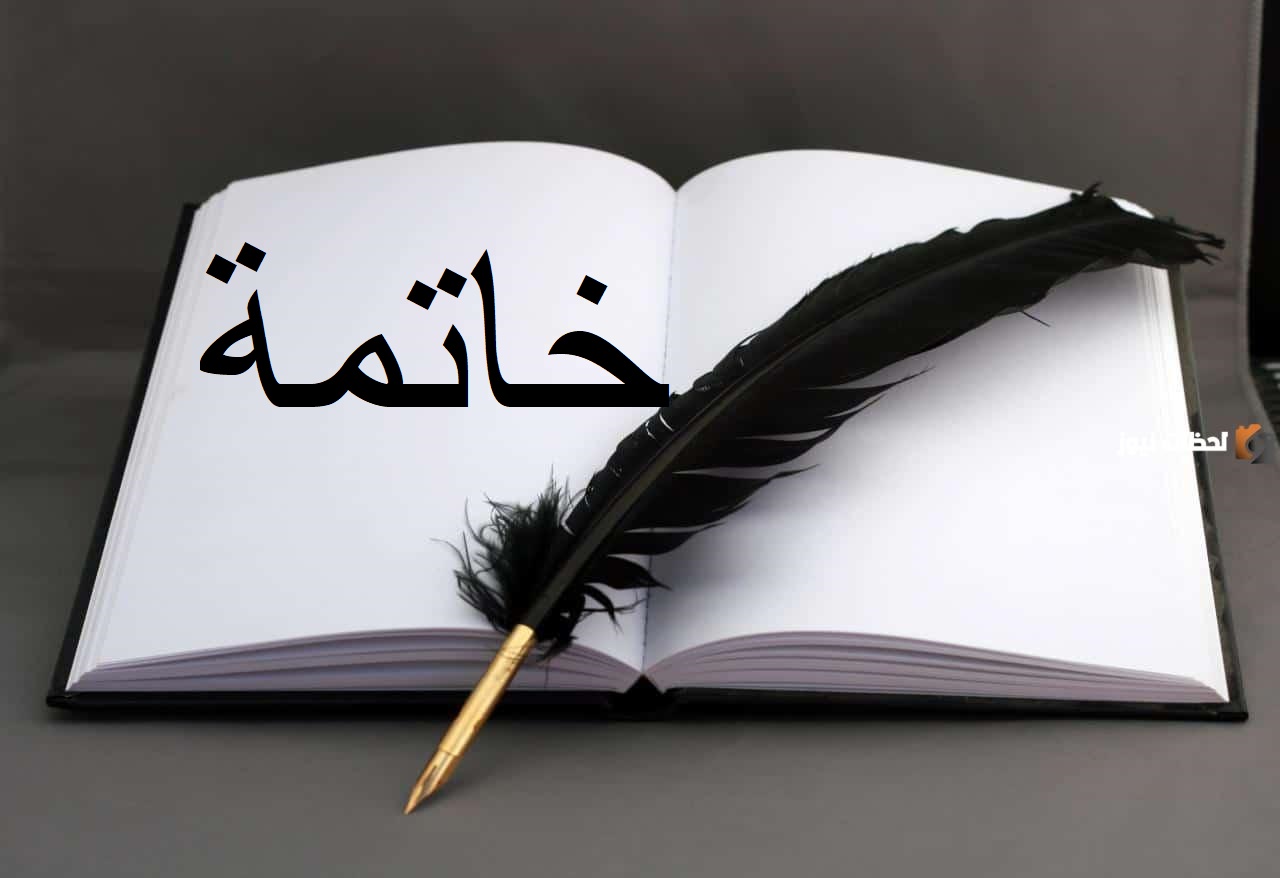 خاتمة
لحظات نيوز